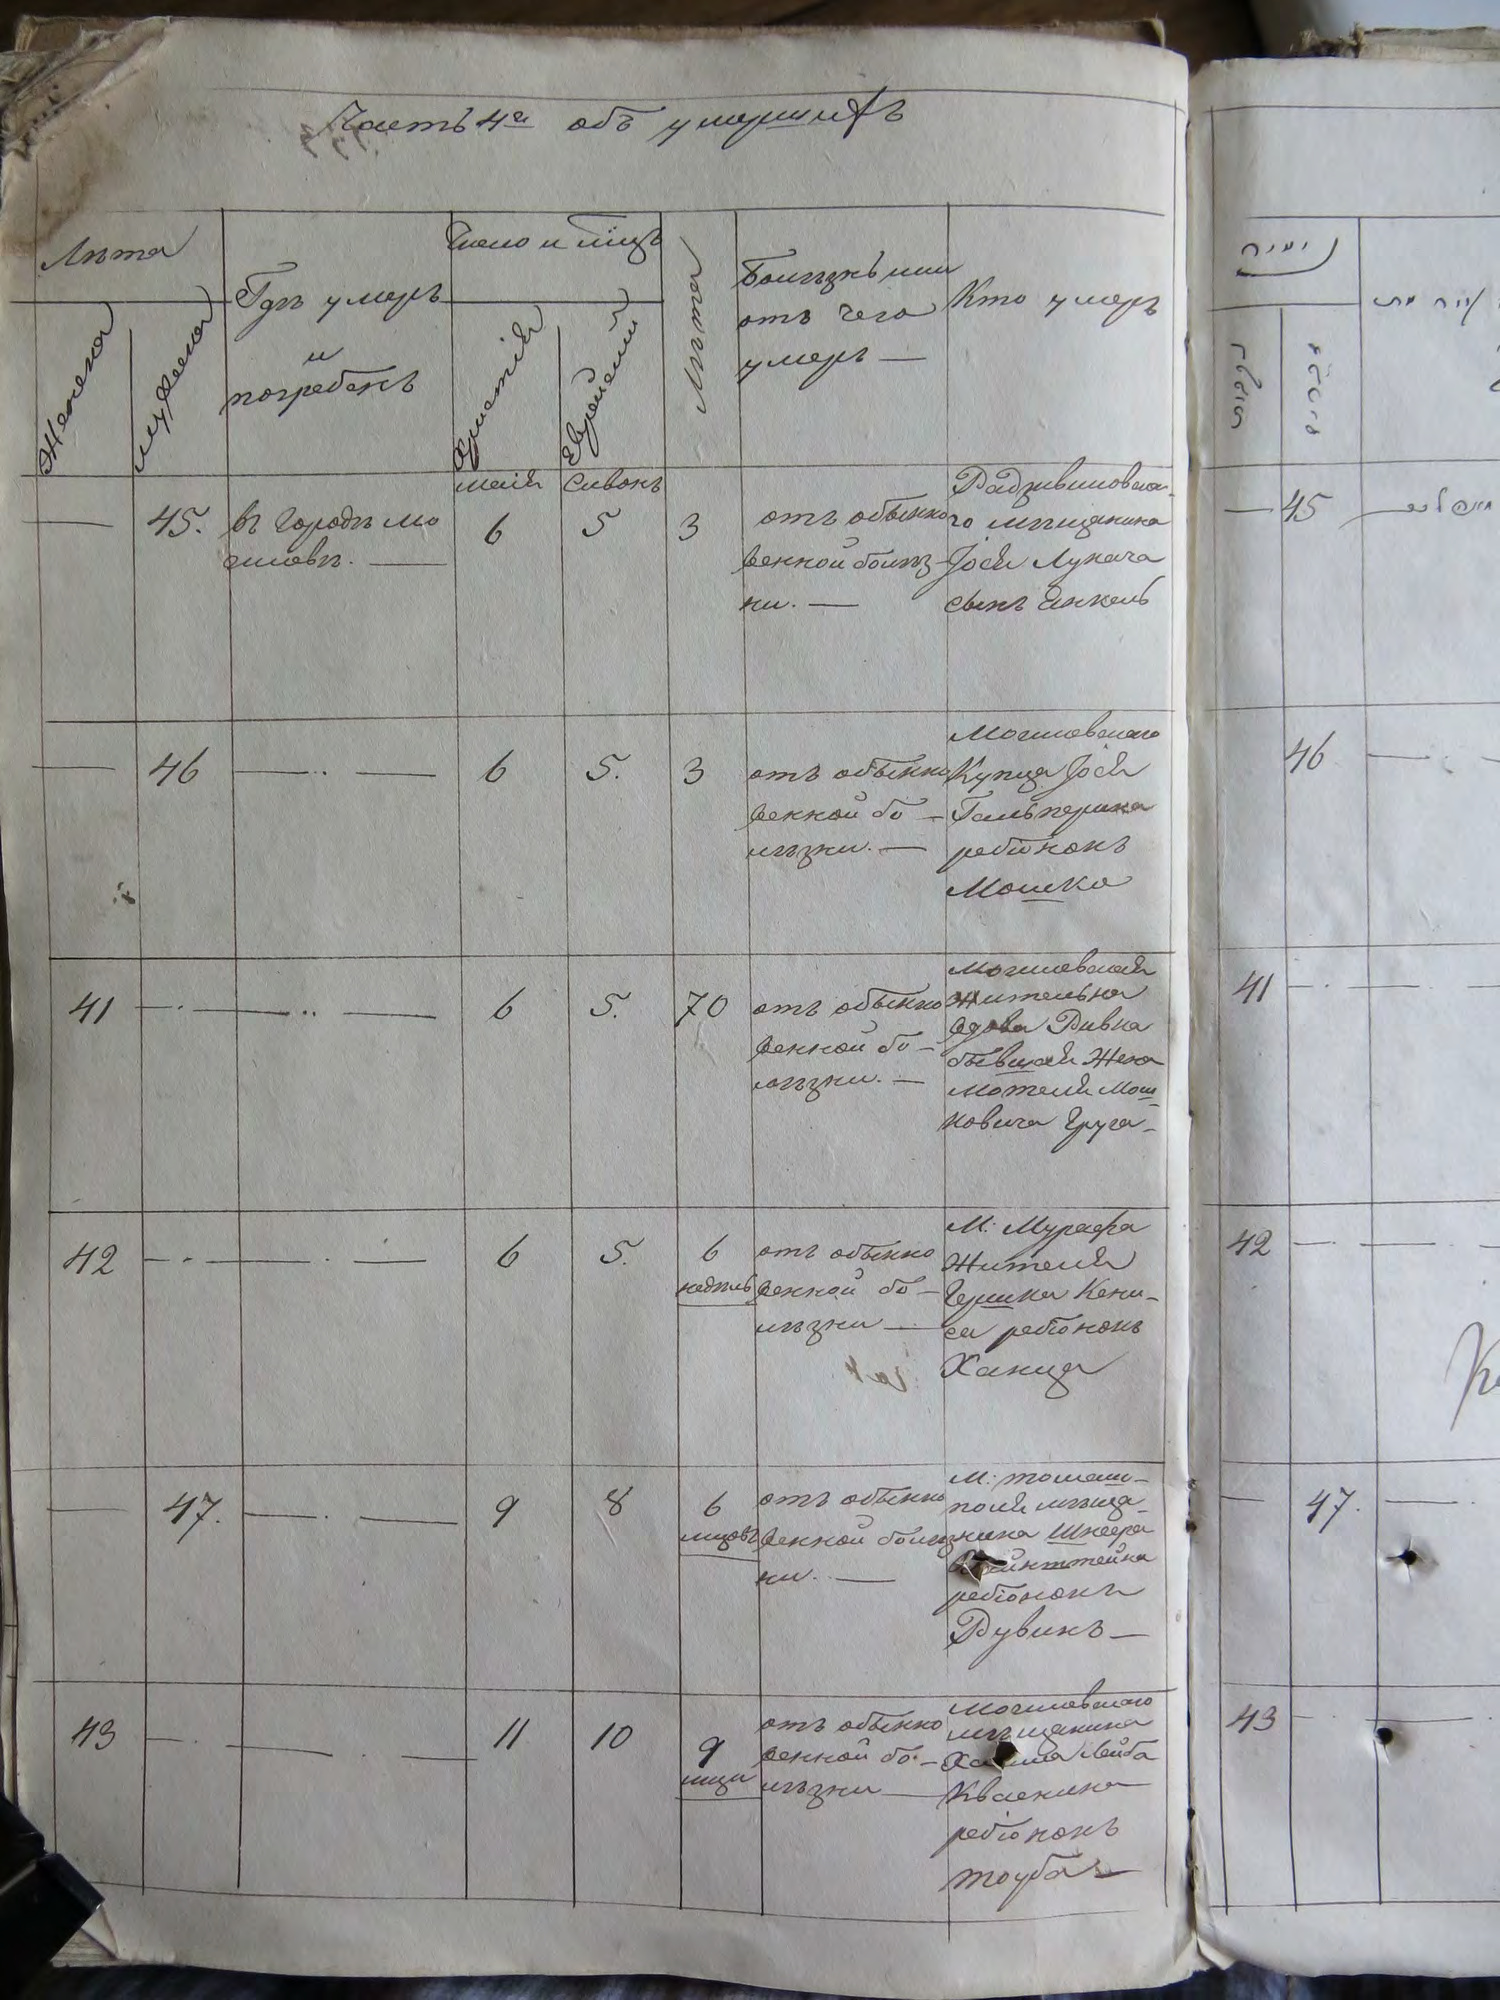 Часть 4я объ умершихъ
Лѣта
Женска
мужеска
Гдѣ умеръ
и
погребенъ
Число и мцъ
Христiя
Еврейскiй
Лѣта
Болѣзнь или
отъ чего
умеръ —
Кто умеръ
маiя Сивонъ
— 45. въ городѣ Мо
гилевѣ. — 6 5 3
отъ обыкно
венной болѣз
ни. —
Радзивиловска-
го мѣщанина
Iося Лукача
сынъ Янкель
— 46 — .. — 6 5. 3
отъ обыкно
венной бо —
лѣзни. —
Могилевскаго
Купца Iося
Гальперина
ребіонокъ
Мошко
41 — . — .. — 6 5. 70
отъ обыкно
венной бо —
лѣзни. —
Могилевская
жителька
вдова Ривка
бывшая Жена
Мотеля Мош
ковича
42 — . — . — 6 5. 6
недѣль
отъ обыкно
венной бо —
лѣзни —
М: Мурафа
Жителя
Гершка Кени-
са ребіонокъ
Ханца
— 47. — . — 9 8 6
мцовъ
отъ обыкно
венной болѣз
ни. —
М: томаш-
поля мѣща-
нина Шнеера
ребіонокъ
Рувинъ —
43 — . — . — 11 10 9
мцы
отъ обыкно
венной бо. —
лѣзни —
Могилевскаго
мѣщанина
Хаима Лейба
Кваснина
ребіонокъ
тоуба —
45
46
41
42
47.
43